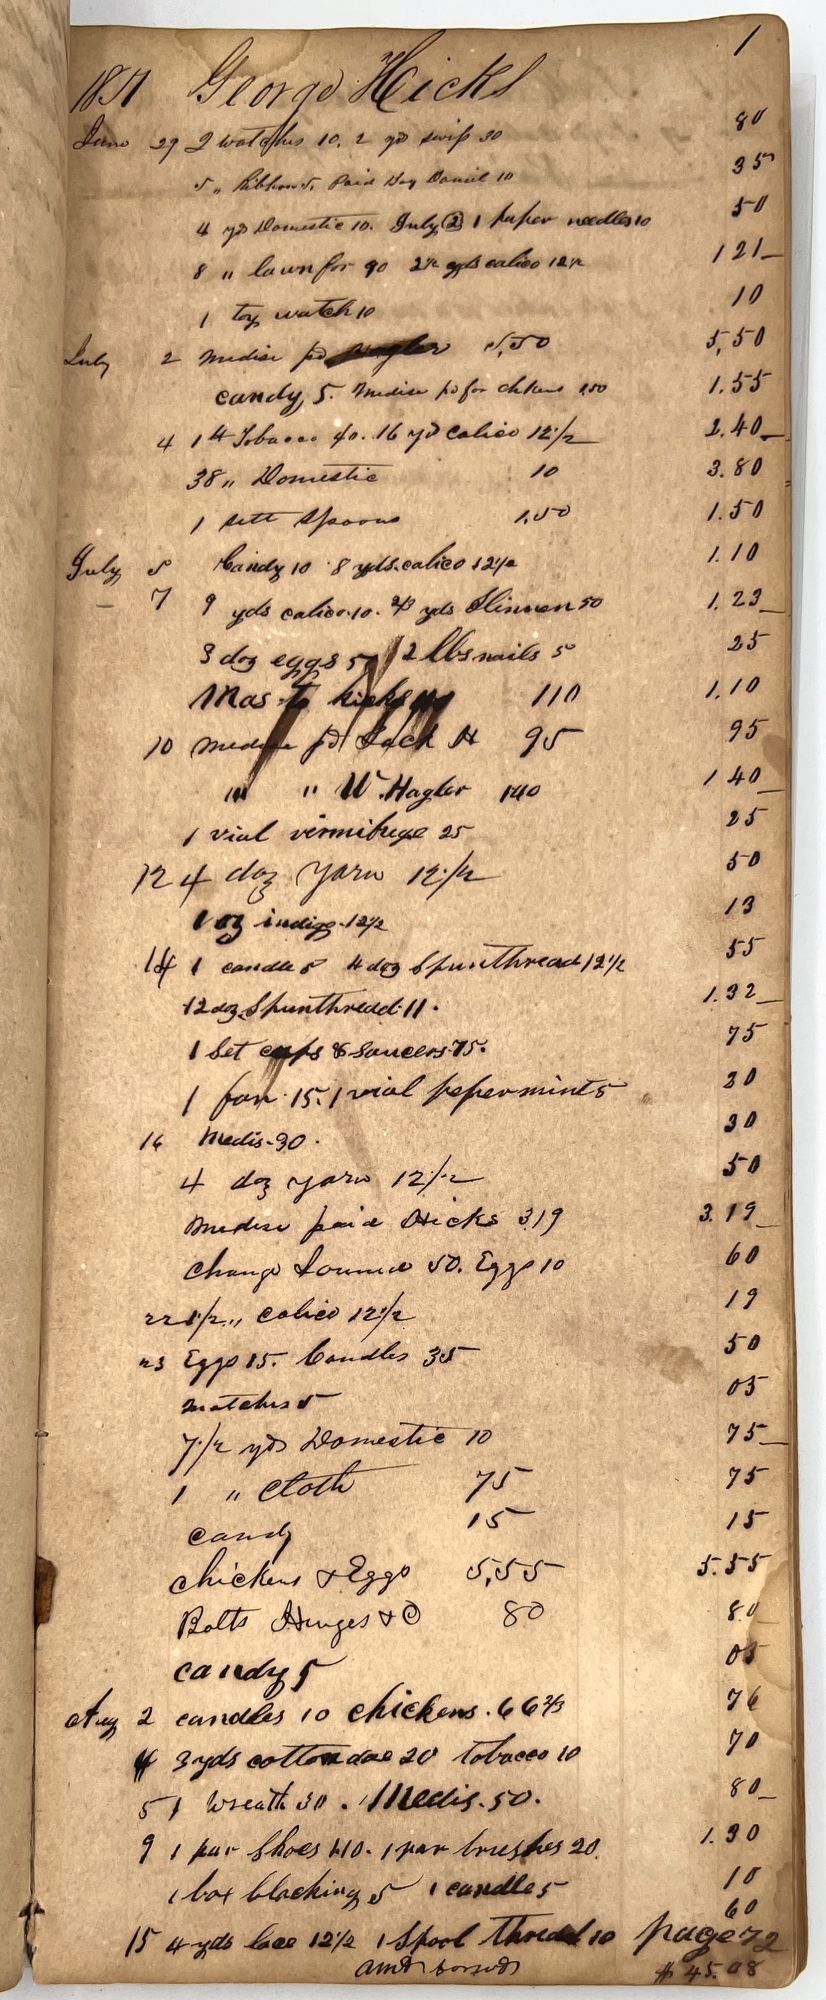 1
1857 George Hicks
June 29 2 watches 10. 2 yd swiss 30 80
5 " Ribbon 5, Paid Hog Daniel 10 35
4 yds Domestic 10. July 2 1 paper needles 10 50
8 " lawn for 90 2 1/2 yds calico 12 1/2 1 21
1 toy watch 10 10
July 2 medise pd 5,50 5,50
candy 5. Medise pd for chikens 1.50 1.55
4 1 lb Tobacco 40. 16 yd calico 12 1/2 2.40
38 " Domestic 10 3.80
1 sett spoons 1.50 1.50
July 5 Candy 10 8 yds calico 12 1/2 1.10
7 9 yds calico 10. 2/3 yds linnen 50 1.23
3 doz eggs 5 2 lbs nails 5 25
Mas to hicks 110 1.10
10 medise pd Jack H 95 95
" " W. Hagler 140 1 40
1 vial vermifuge 25 25
12 4 doz Yarn 12 1/2 50
1 oz indigo 12 1/2 13
14 1 candle 5 4 doz Spunthread 12 1/2 55
12 doz Spunthredd 11. 1.32
1 Set cups & Saucers 75. 75
1 fan 15. 1 vial pepermint 5 20
16 Medis 30. 30
4 doz yarn 12 1/2 50
Medise paid Hicks 3,19 3.19
Change 50. Eggs 10 60
22 1 1/2 " calico 12 1/2 19
23 Eggs 15. Candles 35 50
matches 5 05
7 1/2 yds Domestic 10 75
1 " Cloth 75 75
candy 15 15
Chickens & Eggs 5,55 5.55
Bolts Hinges & C 80 80
candy 5 05
Aug 2 candles 10 chickens. 66 2/3 76
4 3 yds cottonade 20 tobacco 10 70
5 1 wreath 30. Medis. 50. 80
9 1 par Shoes 1.10. 1 par brushes 20 1.30
1 box blacking 5 1 candle 5 10
15 4 yds lace 12 1/2 1 Spool thredd 10 60
page 72
amt $ 45.08